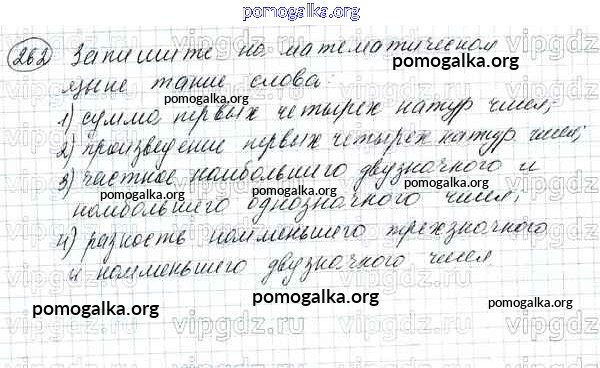 pomogalka.org
262 Запишите на математическом
языке такие слова:
1) сумма первых четырех натур чисел;
2) произведение первых четырех натур чисел;
3) частное наибольшего двузначного и
наибольшего однозначного чисел;
4) разность наименьшего трехзначного
и наименьшего двузначного чисел
pomogalka.org
pomogalka.org
pomogalka.org
pomogalka.org
pomogalka.org
pomogalka.org
pomogalka.org
pomogalka.org
pomogalka.org
pomogalka.org
vipgdz.ru
vipgdz.ru
vipgdz.ru